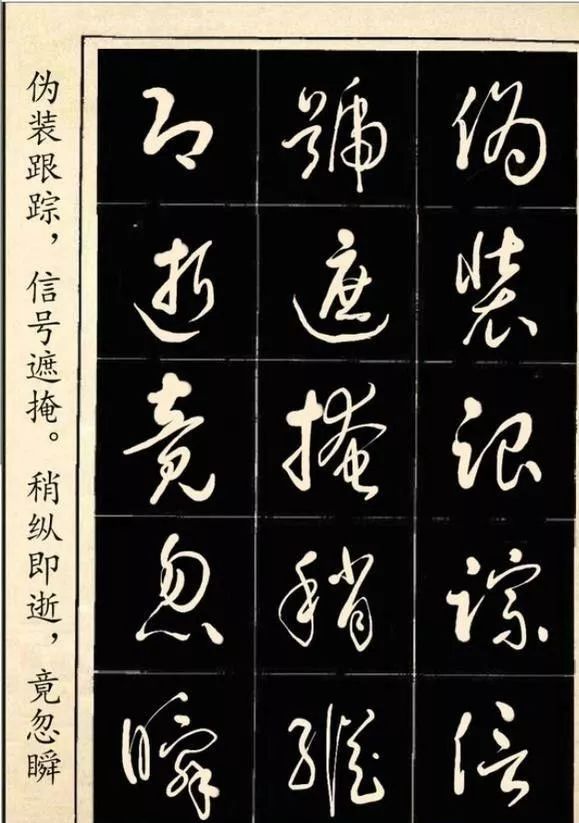 偽裝跟踪信
號遮掩稍縱
即逝竟忽瞬
伪装跟踪，信号遮掩。稍纵即逝，竟忽瞬